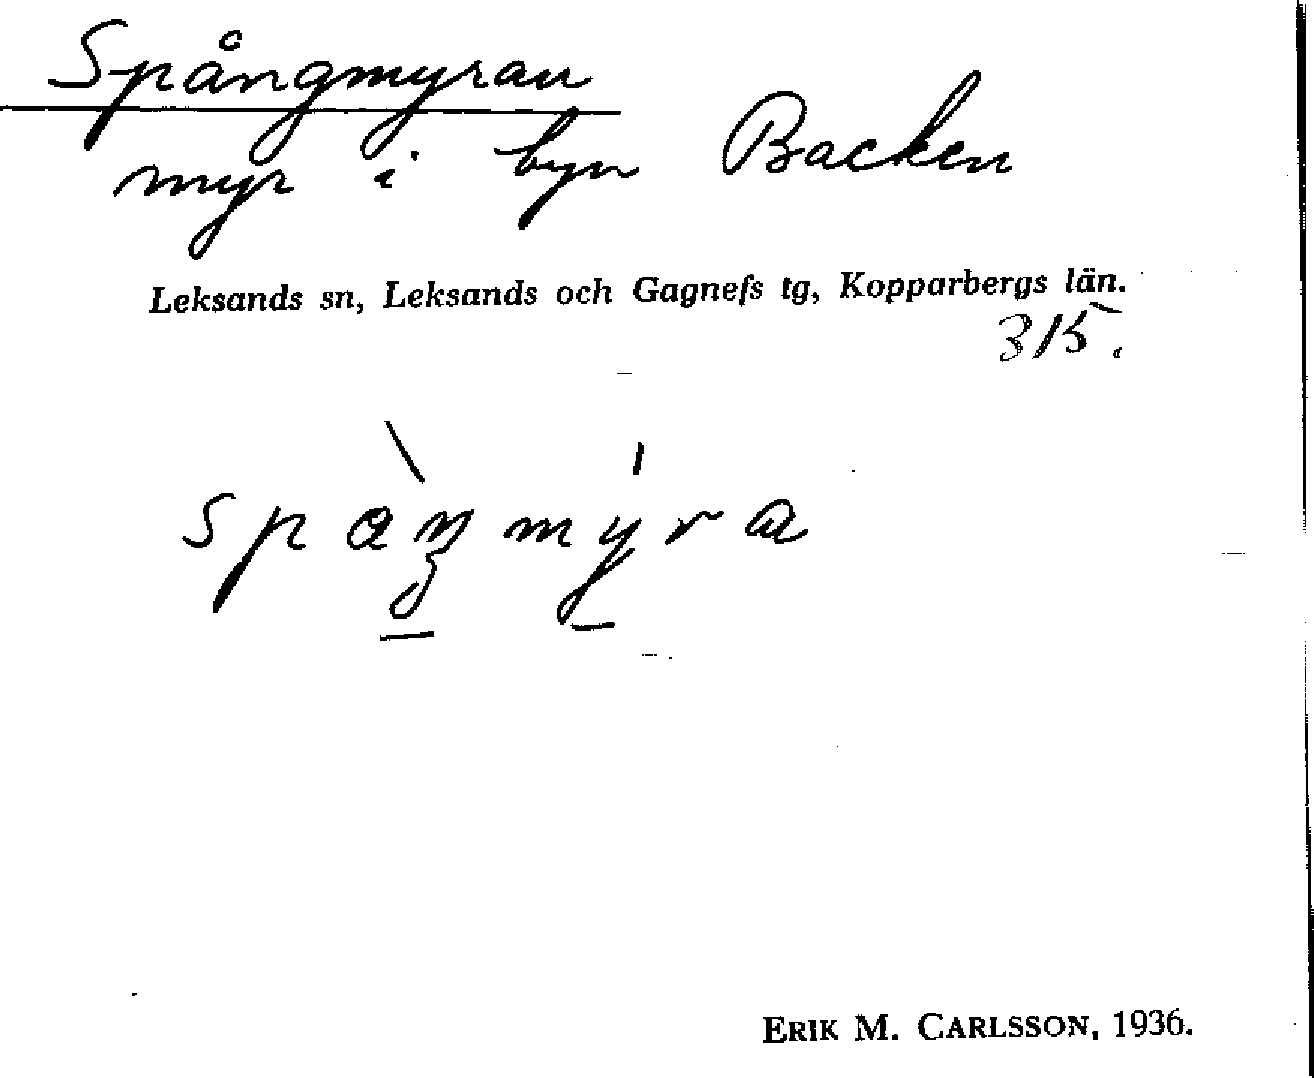 Spångmyran
myr i byn Backen
Leksands sn, Leksands och Gagnefs tg, Kopparbergs län.
315.
ERIK M. CARLSSON, 1936.